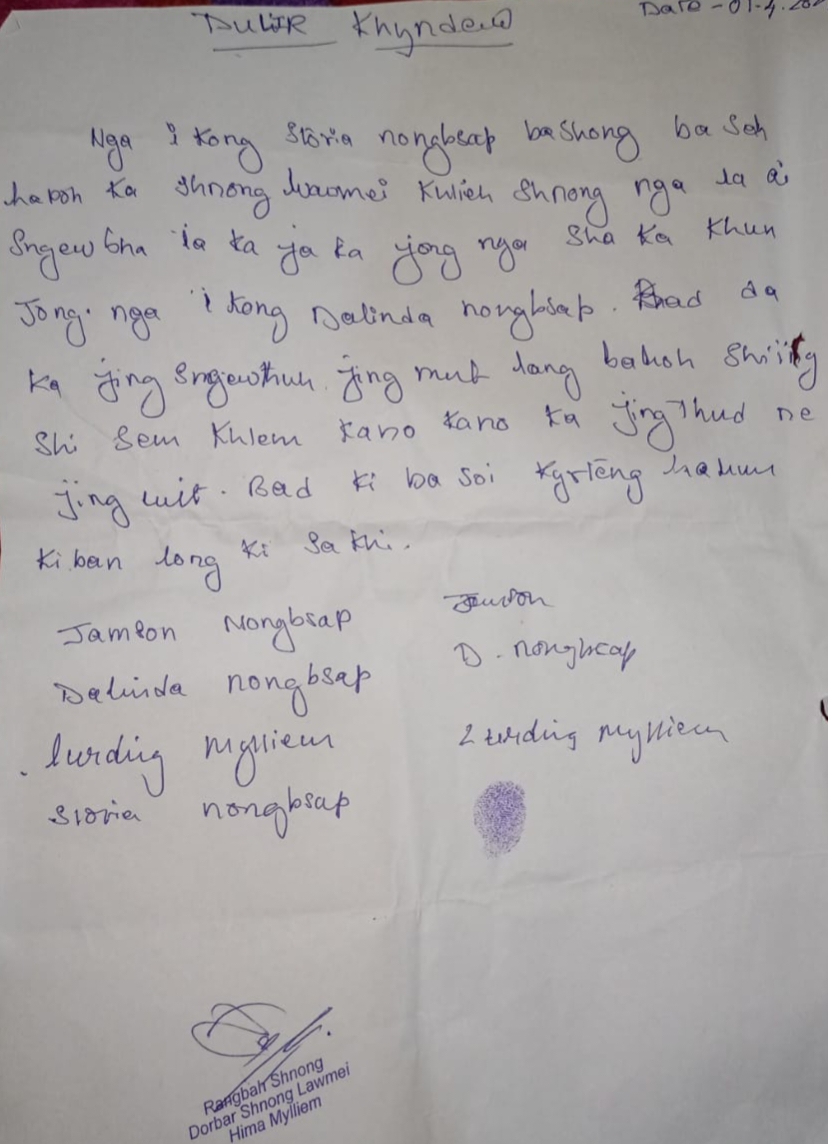 DULIR Khyndew
Date - 01-4.202
Nga i Kong Storia nongbsap bashong ba seh
hapoh Ka Shnong Lawmei Kulieh Shnong nga la ai
Sngewbha ia ka ja ka jong nga Sha Ka Khun
Jong nga i Kong Dalinda nongbsap. Bad da
Ka jing Sngewthuh jing mut lang bakoh Shiing
Shi Sem Khlem Kano Kano Ka jing Thud ne
jing wit. Bad ki ba soi Kyrteng harum
Ki ban long Ki Sakhi.
Jamson Nongbsap
Dalinda nongbsap D. nongbsap
Lurding Mylliem Lurding Mylliem
Storia nongbsap
Rangbah Shnong
Dorbar Shnong Lawmei
Hima Mylliem